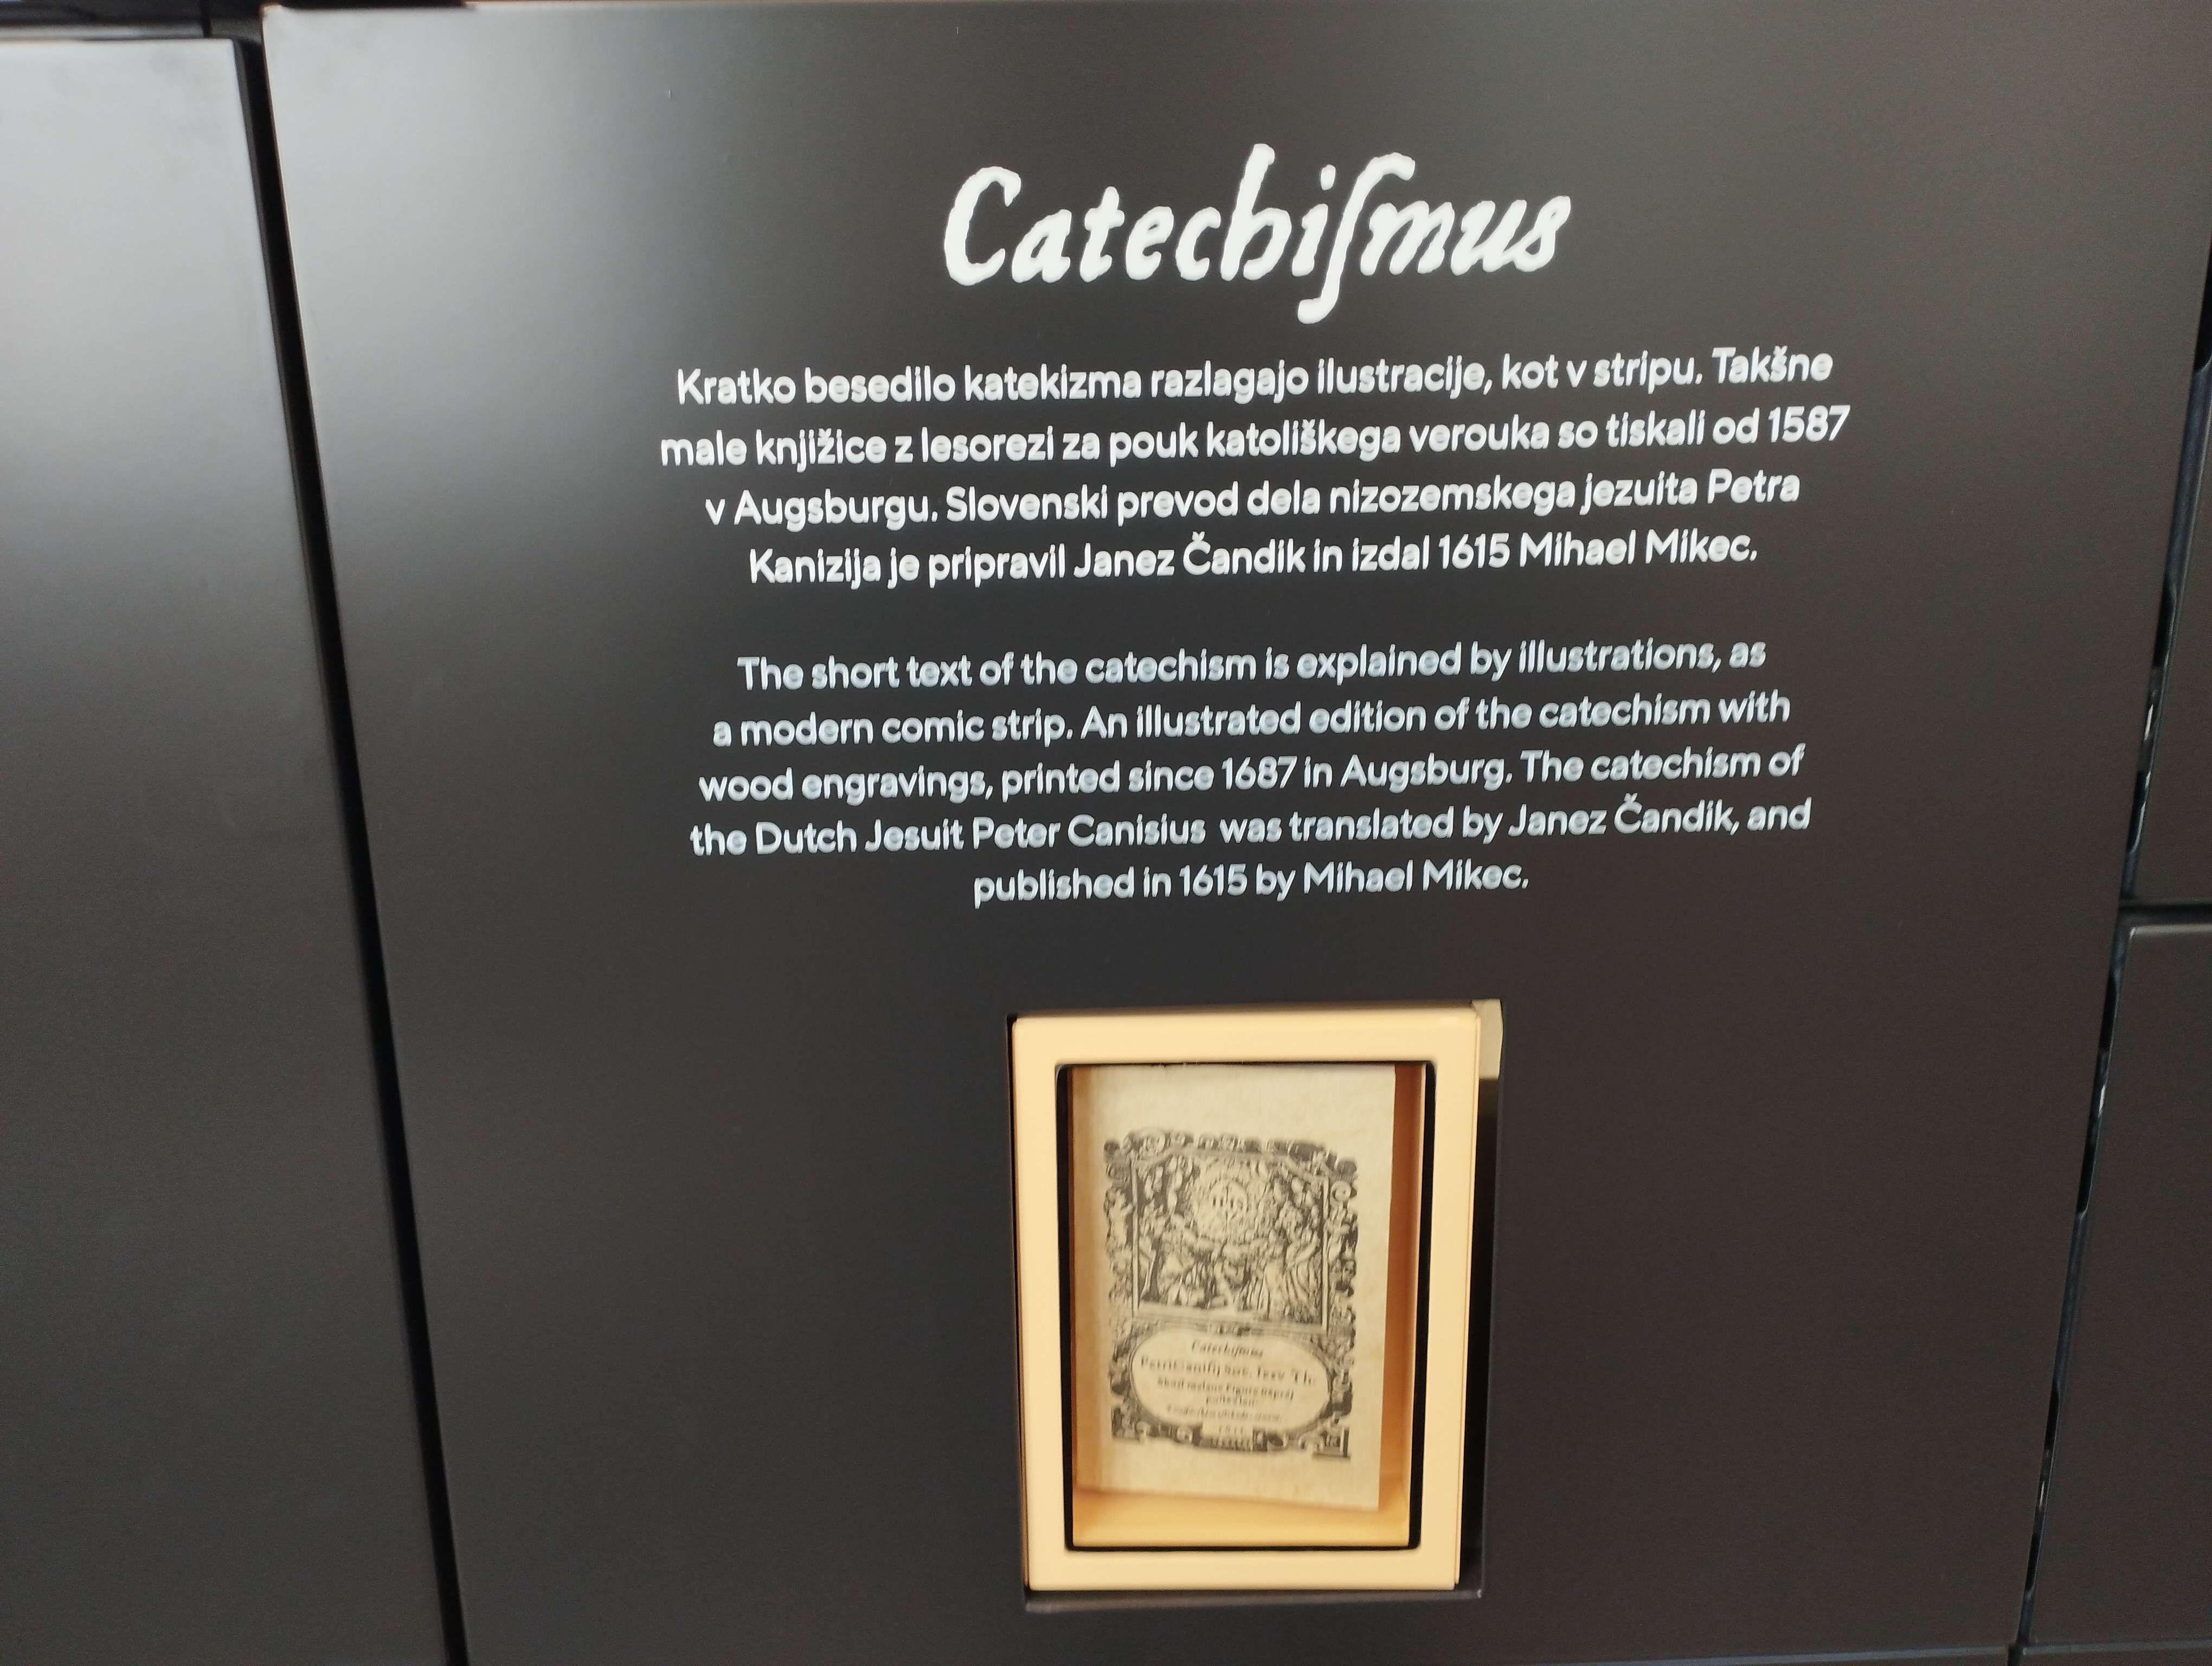 Catechiſmus
Kratko besedilo katekizma razlagajo ilustracije, kot v stripu. Takšne
male knjižice z lesorezi za pouk katoliškega verouka so tiskali od 1587
v Augsburgu. Slovenski prevod dela nizozemskega jezuita Petra
Kanizija je pripravil Janez Čandik in izdal 1615 Mihael Mikec.
The short text of the catechism is explained by illustrations, as
a modern comic strip. An illustrated edition of the catechism with
wood engravings, printed since 1687 in Augsburg. The catechism of
the Dutch Jesuit Peter Canisius was translated by Janez Čandik, and
published in 1615 by Mihael Mikec.
Catechiſmus